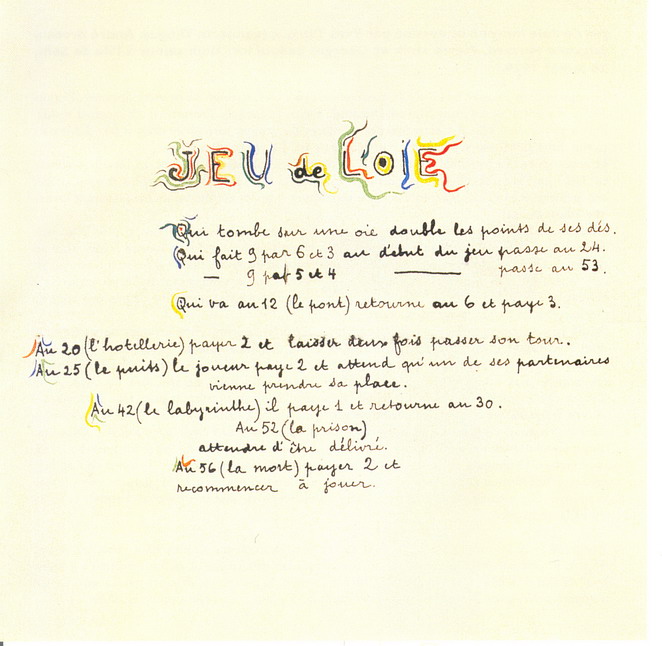 JEU de L'OIE
Qui tombe sur une oie double les points de ses dés.
Qui fait 9 par 6 et 3 au début du jeu passe au 24.
— 9 par 5 et 4 ——— passe au 53.
Qui va au 12 (le pont) retourne au 6 et paye 3.
Au 20 (l'hotellerie) payer 2 et laisser deux fois passer son tour.
Au 25 (le puits) le joueur paye 2 et attend qu'un de ses partenaires
vienne prendre sa place.
Au 42 (le labyrinthe) il paye 1 et retourne au 30.
Au 52 (la prison)
attendre d'être délivré.
Au 56 (la mort) payer 2 et
recommencer à jouer.